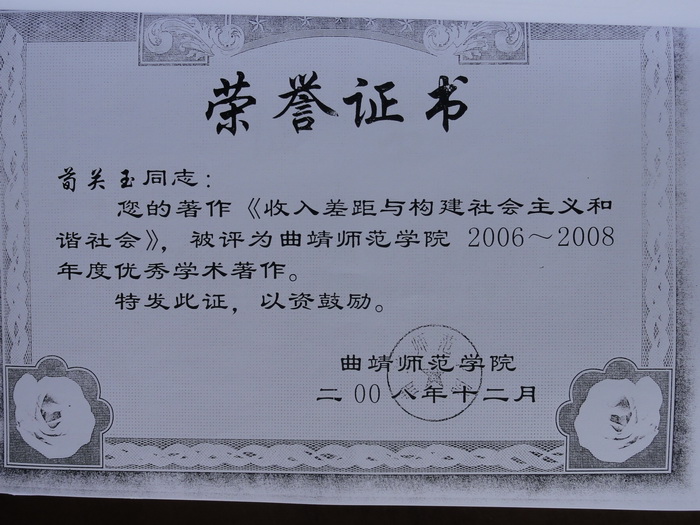 荣誉证书
荀关玉同志：
您的著作《收入差距与构建社会主义和
谐社会》，被评为曲靖师范学院 2006～2008
年度优秀学术著作。
特发此证，以资鼓励。
曲靖师范学院
二00八年十二月